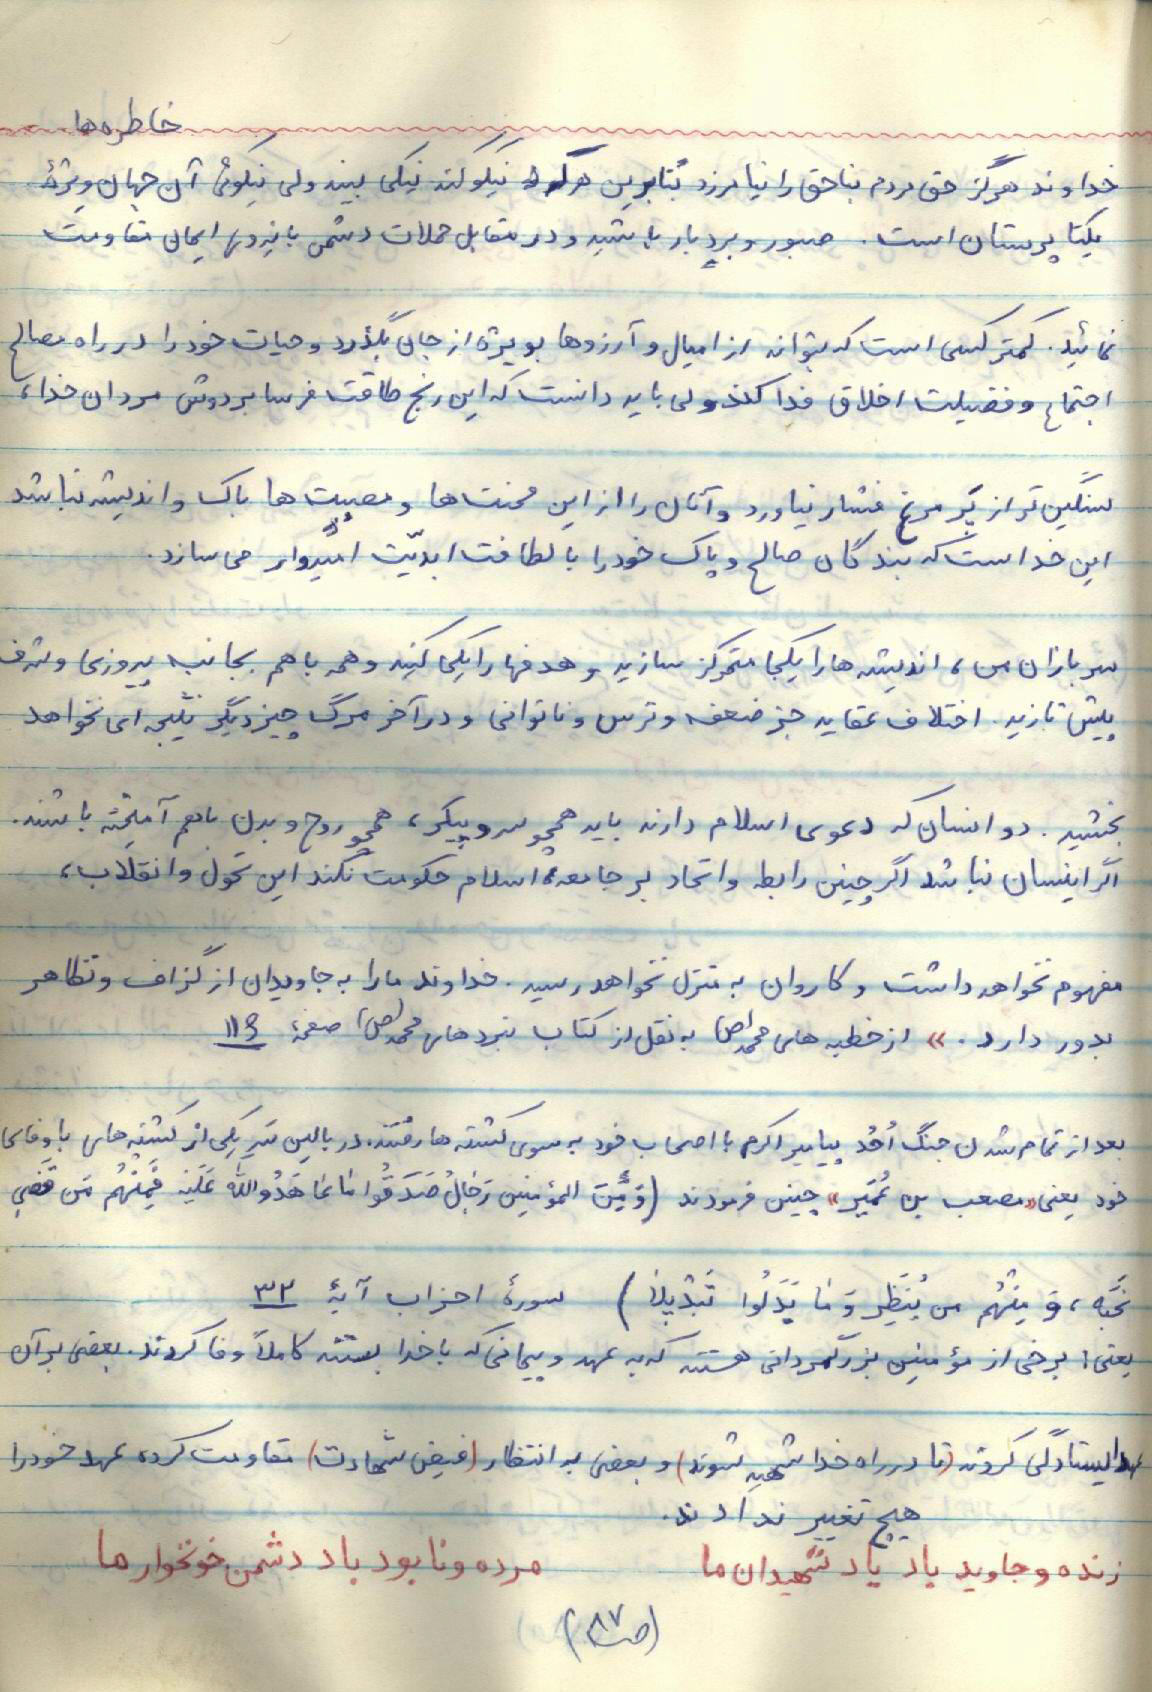 خاطره ها
خداوند هرگز حق مردم بناحق را نیامرزد بنابرین هرکه نیکو کند نیکی بیند ولی نیکوئی آن جهان ویژهٔ
یکتا پرستان است . صبور و بردبار باشید و در مقابل حملات دشمن با نیروی ایمان مقاومت
نمائید . کمتر کسی است که بتواند از امیال و آرزوها بویژه از جان بگذرد و حیات خود را در راه مصالح
اجتماع و فضیلت اخلاق فدا کند ولی باید دانست که این رنج طاقت فرسا بر دوش مردان خدا ،
سنگین تر از پر مرغ فشار نیاورد و آنان را از این محنت ها و مصیبت ها باک و اندیشه نباشد
این خداست که بندگان صالح و پاک خود را با لطافت ابدیّت امیدوار می سازد .
سربازان من ، اندیشه ها را یکجا متمرکز سازید و هدفها را یکی کنید و همه با هم بجانب پیروزی و شرف
پیش تازید . اختلاف عقاید جز ضعف و ترس و ناتوانی و در آخر مرگ چیز دیگر نتیجه ای نخواهد
بخشید . دو انسان که دعوی اسلام دارند باید همچو سر و پیکر ، همچو روح و بدن باهم آمیخته باشند .
اگر اینسان نباشد اگر چنین رابطه و اتحاد بر جامعهٔ اسلام حکومت نکند این تحول و انقلاب ،
مفهوم نخواهد داشت و کاروان به منزل نخواهد رسید . خداوند ما را به جاویدان از گزاف و تظاهر
بدور دارد . » از خطبه های محمد (ص) به نقل از کتاب نبردهای محمد (ص) صفحهٔ ۱۱۶
بعد از تمام شدن جنگ اُحُد پیامبر اکرم با اصحاب خود به سوی کشته ها رفتند . در بالین سَرِ یکی از کشته های با وفای
خود یعنی «مصعب بن عُمَیر» چنین فرمودند (وَ مِنَ المؤمنین رِجالٌ صَدَقُوا مٰا عٰاهَدُوالله عَلَیه فَمِنْهُم مَن قَضی
نَحْبَه ، وَ مِنْهُم من یَنتَظِر وَ مٰا بَدّلُوا تَبْدیلاً ) سورهٔ احزاب آیهٔ ۳۲
یعنی : برخی از مؤمنین بزرگمردانی هستند که به عهد و پیمانی که با خدا بستند کاملاً وفا کردند . بعضی بر آن
عهد ایستادگی کردند (تا در راه خدا شهید شوند) و بعضی به انتظار (فیض شهادت) مقاومت کرده عهد خود را
هیچ تغییر ندادند .
زنده و جاوید باد یاد شهیدان ما مرده و نابود باد دشمن خونخوار ما
(ص ۸۷)